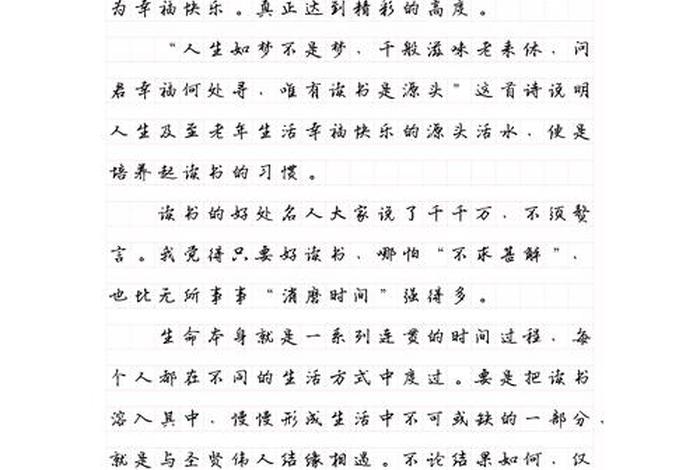 为幸福快乐。真正达到精彩的高度。
“人生如梦不是梦，千般滋味老来休，问
君幸福何处寻，唯有读书是源头”这首诗说明
人生及至老年生活幸福快乐的源头活水，便是
培养起读书的习惯。
读书的好处名人大家说了千千万，不须赘
言。我觉得只要好读书，哪怕“不求甚解”，
也比无所事事“消磨时间”强得多。
生命本身就是一系列连贯的时间过程，每
个人都在不同的生活方式中度过。要是把读书
溶入其中，慢慢形成生活中不可或缺的一部分，
就是与圣贤伟人结缘相遇。不论结果如何，仅